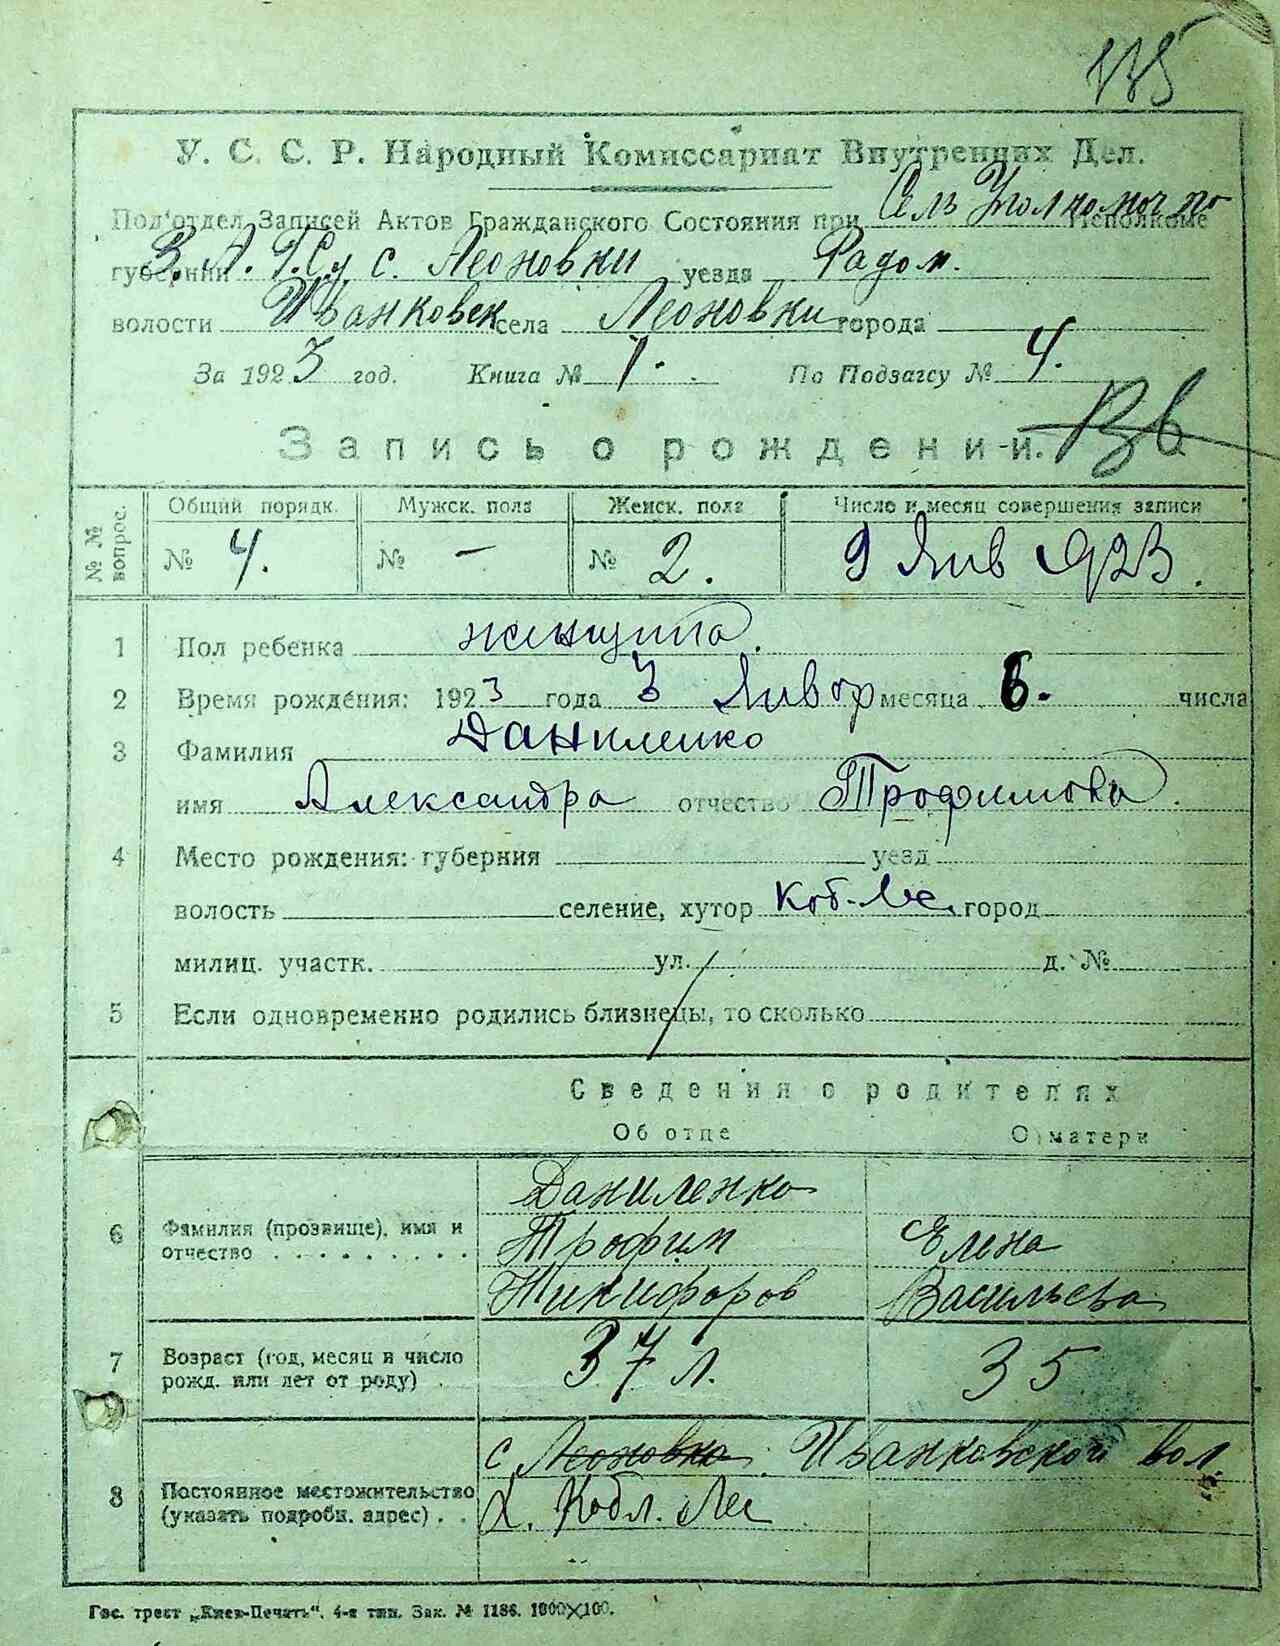 175
У. С. С. Р. Народный Комиссариат Внутренних Дел.
Под'отдел Записей Актов Гражданского Состояния при Сель Уполномоч по Исполкоме
губернии З. А. Г. Су с. Леоновки уезда Радом.
волости Иванковск села Леоновки города
За 1923 год. Книга № 1. По Подзагсу № 4.
Запись о рождении.
№№ вопрос. Общий порядк. Мужск. пола Женск. пола Число и месяц совершения записи
№ 4. № — № 2. 9 Янв 1923.
1 Пол ребенка женщина.
2 Время рождения: 1923 года 3 Январ месяца 6. числа
3 Фамилия Даниленко
имя Александра отчество Трофимова.
4 Место рождения: губерния уезд
волость селение, хутор Коб. Ле. город
милиц. участк. ул. д. №
5 Если одновременно родились близнецы, то сколько
Сведения о родителях
Об отце О матери
Даниленко
6 Фамилия (прозвище), имя и отчество Трофим Елена
Никифоров Васильева
7 Возраст (год, месяц и число рожд. или лет от роду) 37 л. 35
с Леоновка. Иванковской вол.
8 Постоянное местожительство (указать подробн. адрес) х. Кобл. Лес
Гос. трест „Киев-Печать“. 4-я тип. Зак. № 1186. 1000×100.